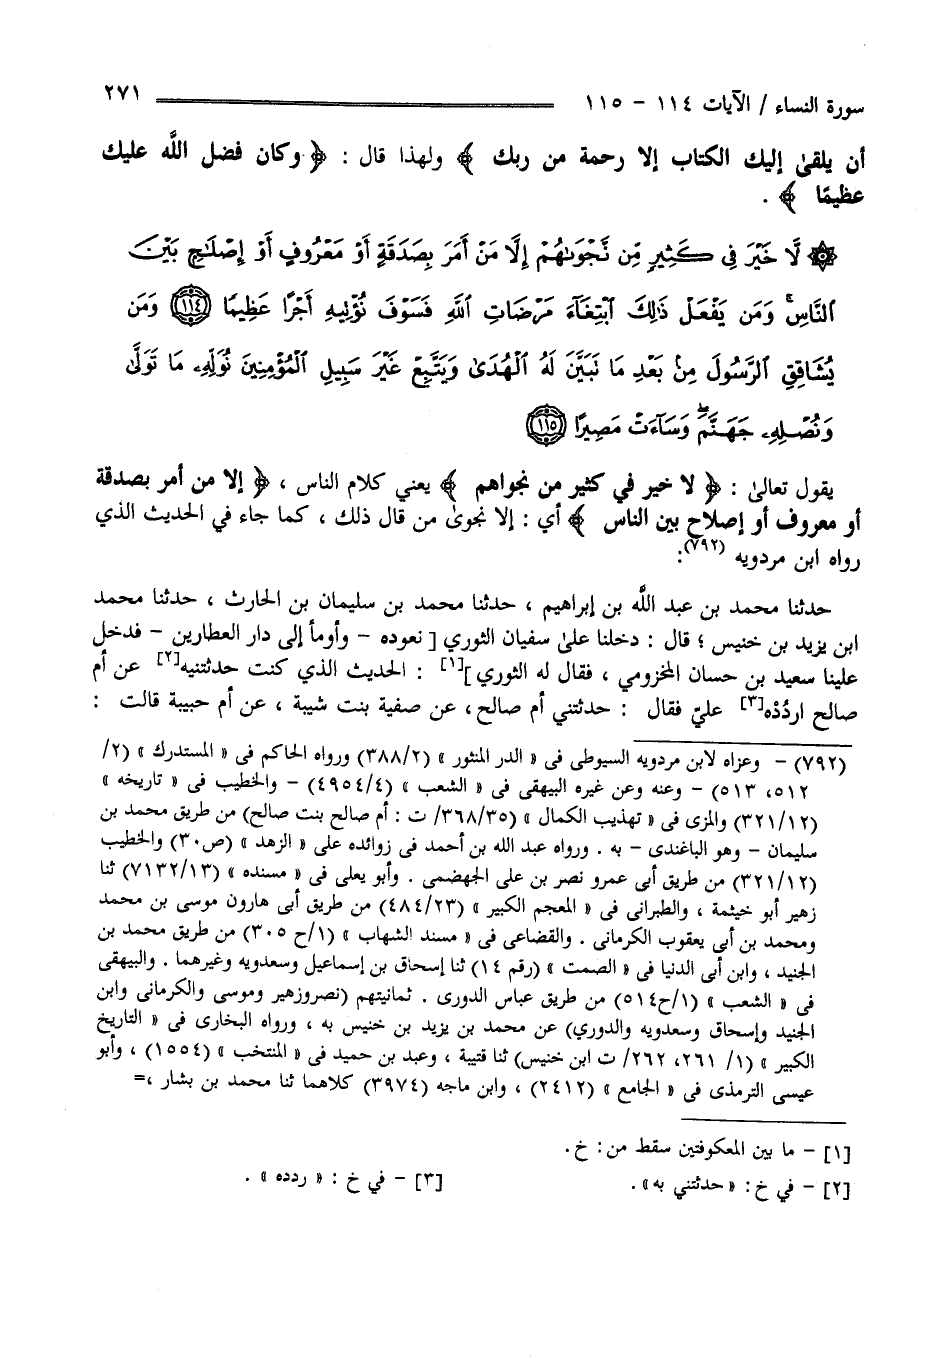 سورة النساء / الآيات ١١٤ - ١١٥ ٢٧١
أن يلقىٰ إليك الكتاب إلا رحمة من ربك ﴾ ولهذا قال : ﴿ وكان فضل اللَّه عليك
عظيمًا ﴾ .
۞ لَّا خَيْرَ فِي كَثِيرٍ مِّن نَّجْوَىٰهُمْ إِلَّا مَنْ أَمَرَ بِصَدَقَةٍ أَوْ مَعْرُوفٍ أَوْ إِصْلَٰحٍ بَيْنَ
ٱلنَّاسِ ۚ وَمَن يَفْعَلْ ذَٰلِكَ ٱبْتِغَآءَ مَرْضَاتِ ٱللَّهِ فَسَوْفَ نُؤْتِيهِ أَجْرًا عَظِيمًا ١١٤ وَمَن
يُشَاقِقِ ٱلرَّسُولَ مِنۢ بَعْدِ مَا تَبَيَّنَ لَهُ ٱلْهُدَىٰ وَيَتَّبِعْ غَيْرَ سَبِيلِ ٱلْمُؤْمِنِينَ نُوَلِّهِۦ مَا تَوَلَّىٰ
وَنُصْلِهِۦ جَهَنَّمَ ۖ وَسَآءَتْ مَصِيرًا ١١٥
يقول تعالىٰ : ﴿ لا خير في كثير من نجواهم ﴾ يعني كلام الناس ، ﴿ إلا من أمر بصدقة
أو معروف أو إصلاح بين الناس ﴾ أي : إلا نجوىٰ من قال ذلك ، كما جاء في الحديث الذي
رواه ابن مردويه (٧٩٢):
حدثنا محمد بن عبد اللَّه بن إبراهيم ، حدثنا محمد بن سليمان بن الحارث ، حدثنا محمد
ابن يزيد بن خنيس ؛ قال : دخلنا علىٰ سفيان الثوري [ نعوده - وأومأ إلى دار العطارين - فدخل
علينا سعيد بن حسان المخزومي ، فقال له الثوري ][١] : الحديث الذي كنت حدثتنيه[٢] عن أم
صالح اردُدْه[٣] عليّ فقال : حدثتني أم صالح ، عن صفية بنت شيبة ، عن أم حبيبة قالت :
(٧٩٢) - وعزاه لابن مردويه السيوطى فى « الدر المنثور » (٣٨٨/٢) ورواه الحاكم فى « المستدرك » (٢/
٥١٢، ٥١٣) - وعنه وعن غيره البيهقى فى « الشعب » (٤٩٥٤/٤) - والخطيب فى « تاريخه »
(٣٢١/١٢) والمزى فى « تهذيب الكمال » (٣٦٨/٣٥/ ت : أم صالح بنت صالح) من طريق محمد بن
سليمان - وهو الباغندى - به . ورواه عبد الله بن أحمد فى زوائده على « الزهد » (ص٣٠) والخطيب
(٣٢١/١٢) من طريق أبى عمرو نصر بن على الجهضمى . وأبو يعلى فى « مسنده » (٧١٣٢/١٣) ثنا
زهير أبو خيثمة ، والطبرانى فى « المعجم الكبير » (٤٨٤/٢٣) من طريق أبى هارون موسى بن محمد
ومحمد بن أبى يعقوب الكرمانى . والقضاعى فى « مسند الشهاب » (١/ح ٣٠٥) من طريق محمد بن
الجنيد ، وابن أبى الدنيا فى « الصمت » (رقم ١٤) ثنا إسحاق بن إسماعيل وسعدويه وغيرهما . والبيهقى
فى « الشعب » (١/ح٥١٤) من طريق عباس الدورى . ثمانيتهم (نصروزهير وموسى والكرمانى وابن
الجنيد وإسحاق وسعدويه والدوري) عن محمد بن يزيد بن خنيس به ، ورواه البخارى فى « التاريخ
الكبير » (١/ ٢٦١، ٢٦٢/ ت ابن خنيس) ثنا قتيبة ، وعبد بن حميد فى « المنتخب » (١٥٥٤) ، وأبو
عيسى الترمذى فى « الجامع » (٢٤١٢) ، وابن ماجه (٣٩٧٤) كلاهما ثنا محمد بن بشار ،=
[١] - ما بين المعكوفتين سقط من : خ.
[٢] - في خ : « حدثتني به» . [٣] - في خ : « ردده » .